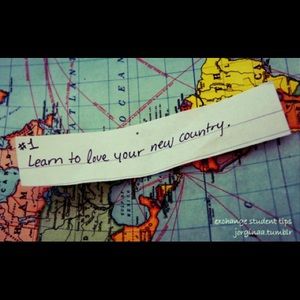 #1
Learn to love your new country.
exchange student tips
jorginaa.tumblr